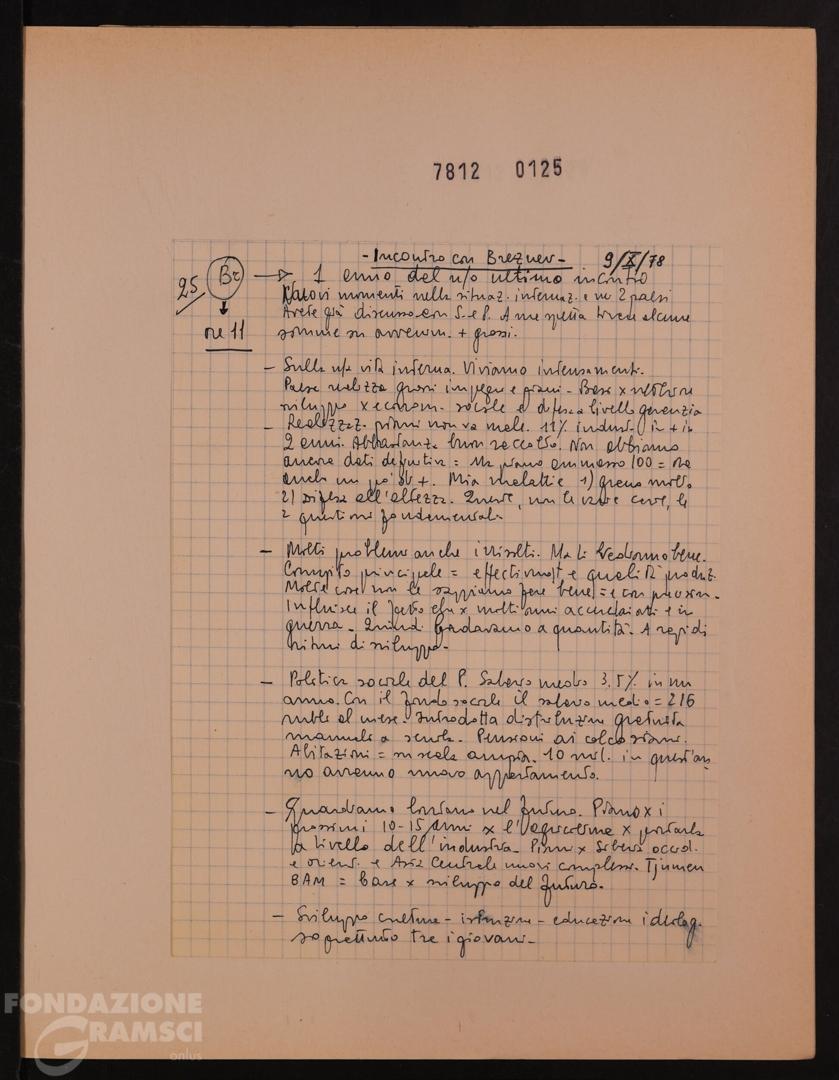 7812 0125
- Incontro con Breznev - 9/X/78
25 Br → 1 anno dal n/o ultimo incontro
ore 11
Nuovi momenti nella situaz. internaz. e nei 2 paesi
Avete già discusso con S. e P. A me spetta trarre alcune
somme su avvenim. + grossi.
- Sulla n/a vita interna. Viviamo intensamente.
Paese realizza grossi impegni e piani - Base x ulteriore
sviluppo x econom. sociale e difesa a livello garanzia
- Realizzaz. piani non va male. 11% industr. in + in
2 anni. Abbastanza buon raccolto. Non abbiamo
ancora dati definitivi = Ma piano ammasso 100 = ma
anche un po' di +. Mia malattie 1) grano molto
2) Difesa all'altezza. Queste, non le uniche cose, le
2 questioni fondamentali.
- Molti problemi anche irrisolti. Ma li vedremo bene.
Compito principale = effectivnost e qualità produz.
Molte cose non le sappiamo fare bene = e con precision.
Influisce il fatto che x molti anni accerchiati e in
guerra - Quindi badavamo a quantità. A rapidi
ritmi di sviluppo.
- Politica sociale del P. Salario medio 3,5% in un
anno. Con il fondo sociale il salario medio = 216
rubli al mese. Introdotta distribuzione gratuita
manuali a scuola. Pensioni ai colcosiani.
Abitazioni = su scala ampia. 10 mil. in quest'an
no avranno nuovo appartamento.
- Guardiamo lontano nel futuro. Piano x i
prossimi 10-15 anni x l'agricoltura x portarla
a livello dell'industria. Piani x Siberia occid.
e orient. e Asia Centrale nuovi complessi. Tjumen
BAM = base x sviluppo del futuro.
- Sviluppo cultura - istruzione - educazione ideolog.
soprattutto tra i giovani -
FONDAZIONE
GRAMSCI
onlus